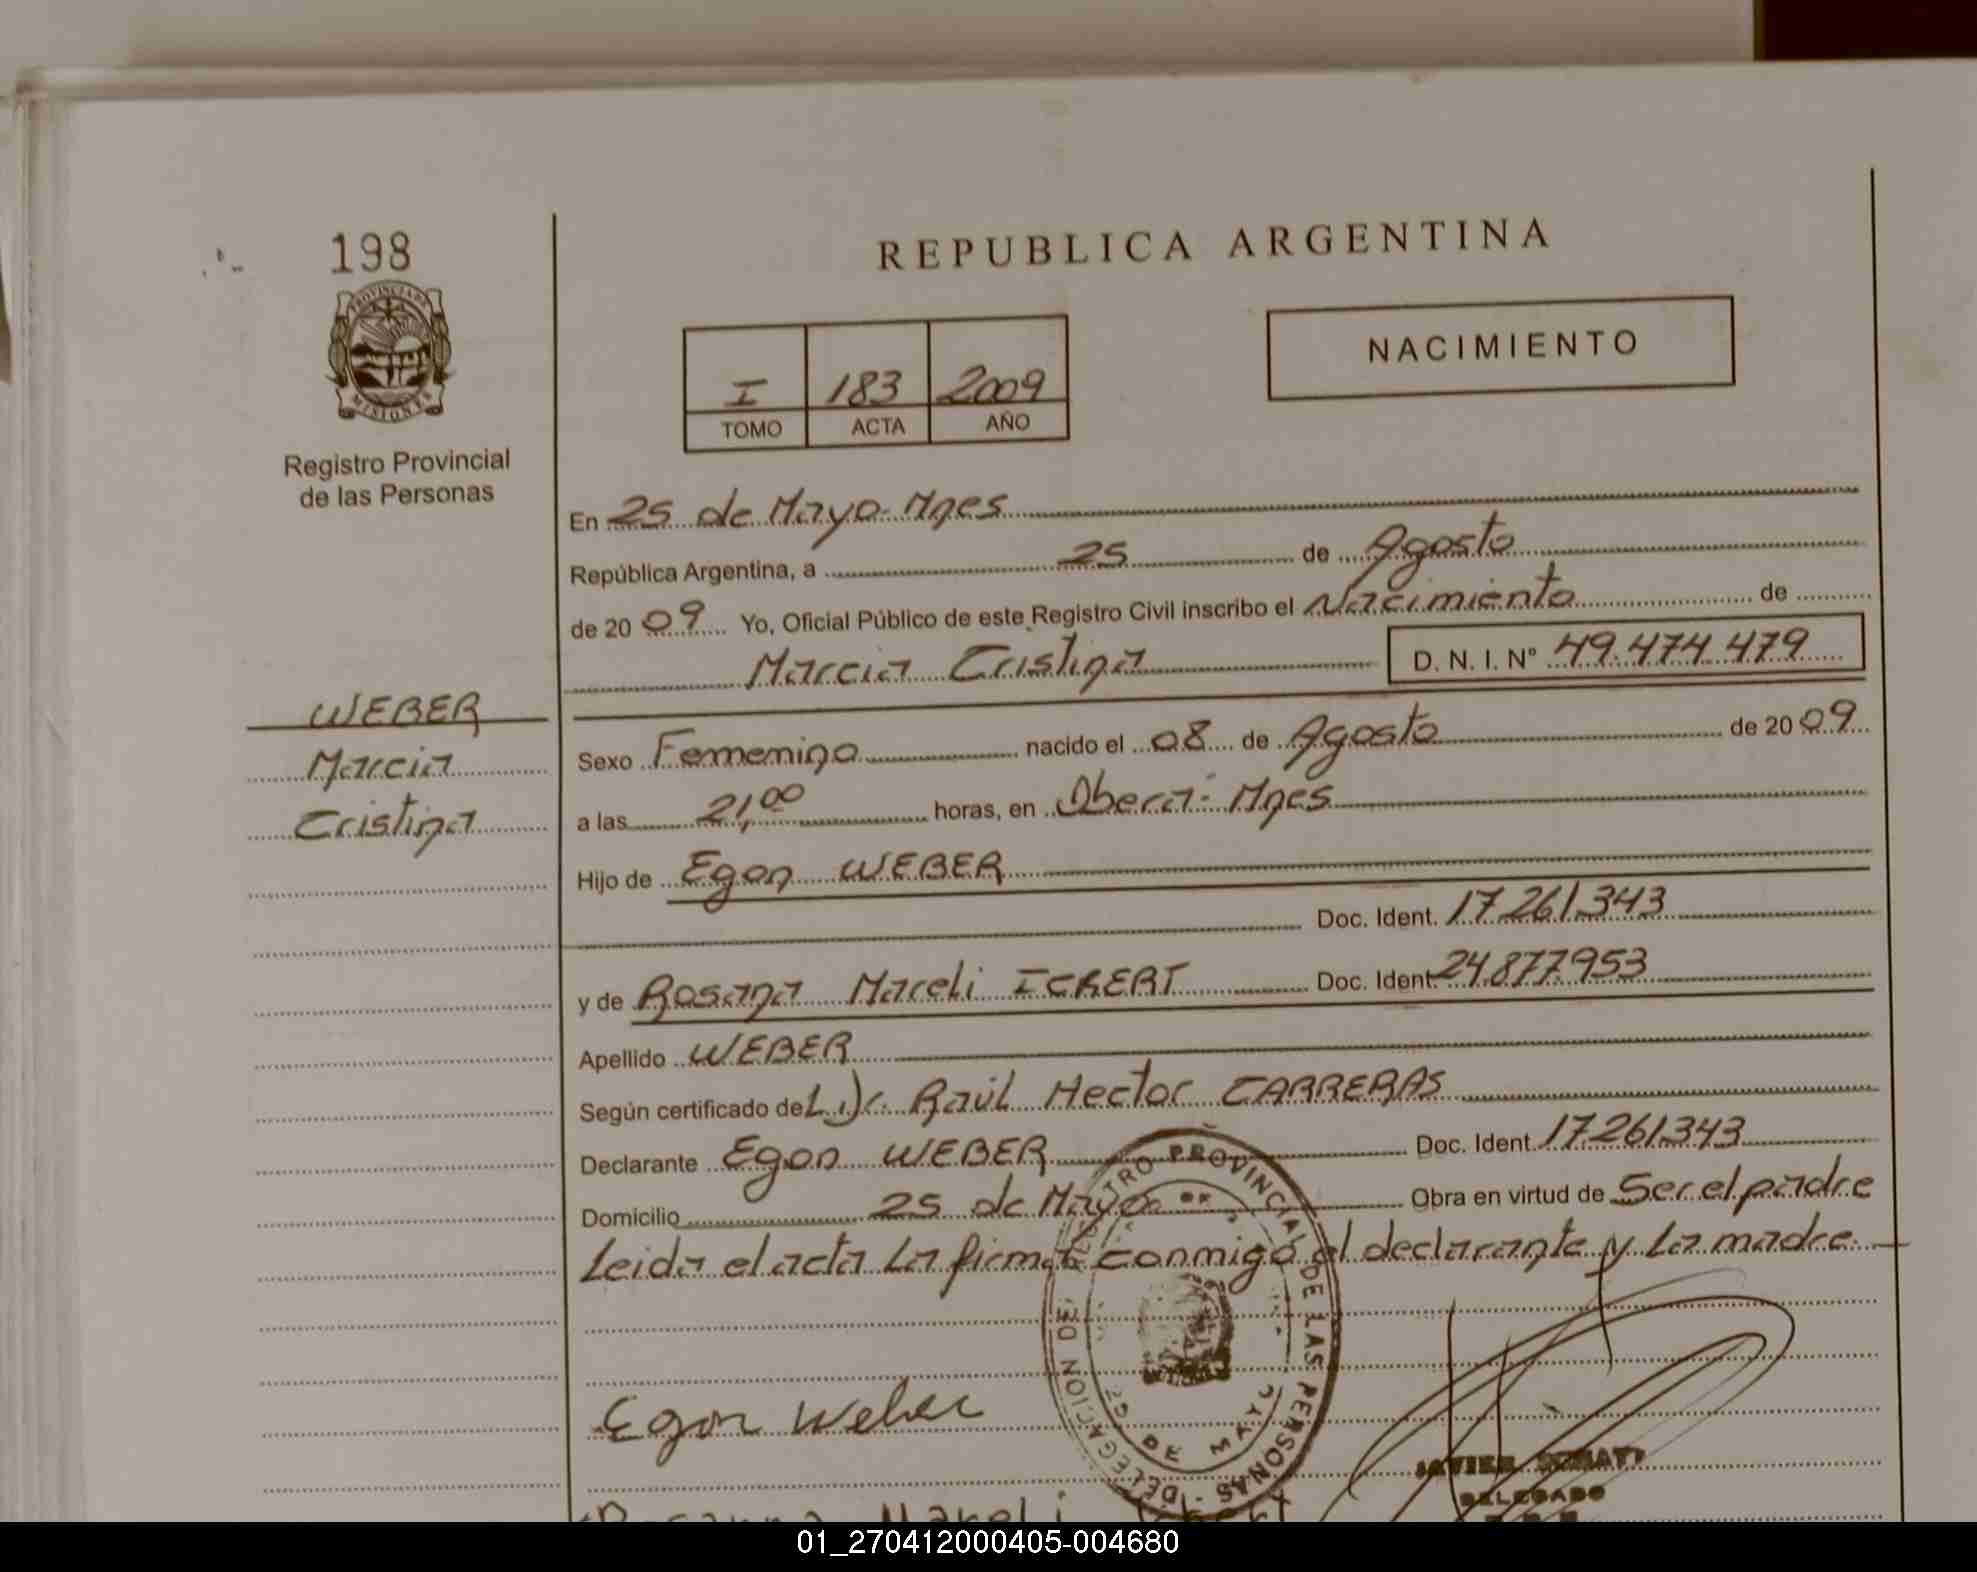 198
PROVINCIA DE
MISIONES
Registro Provincial
de las Personas
WEBER
Marcia
Cristina
REPUBLICA ARGENTINA
I 183 2009
TOMO ACTA AÑO
NACIMIENTO
En 25 de Mayo- Mnes
República Argentina, a 25 de Agosto
de 20 09 Yo, Oficial Público de este Registro Civil inscribo el Nacimiento de
Marcia Cristina D. N. I. N° 49.474.479
Sexo Femenino nacido el 08 de Agosto de 20 09
a las 21,00 horas, en Obera- Mnes
Hijo de Egon WEBER
Doc. Ident. 17.261.343
y de Rosana Mareli ICKERT Doc. Ident. 24.877.953
Apellido WEBER
Según certificado del Dr. Raúl Hector CARRERAS
Declarante Egon WEBER Doc. Ident. 17.261.343
Domicilio 25 de Mayo Obra en virtud de Ser el padre
Leida el acta La firman conmigo el declarante y La madre
REGISTRO PROVINCIAL DE LAS PERSONAS - DELEGACION DE
25 DE MAYO
Egon Weber
JAVIER
DELEGADO
Mareli
01_270412000405-004680